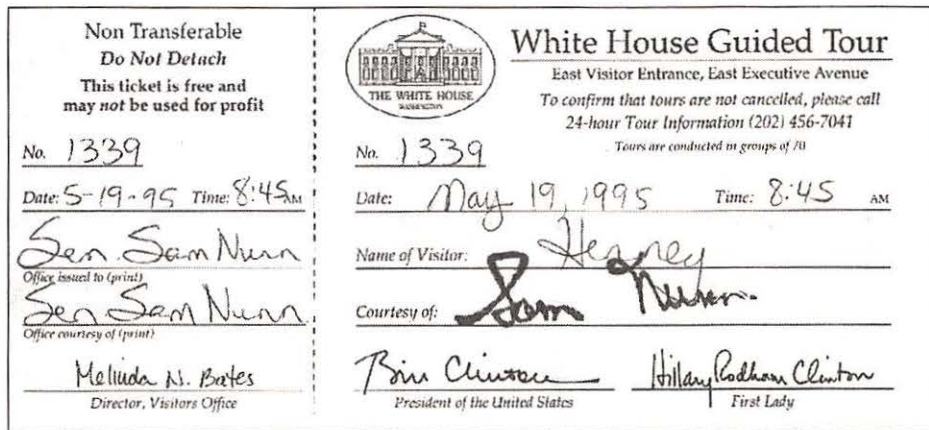 Non Transferable
Do Not Detach
This ticket is free and
may not be used for profit
No. 1339
Date: 5-19-95 Time: 8:45 AM
Sen. Sam Nunn
Office issued to (print)
Sen Sam Nunn
Office courtesy of (print)
Melinda N. Bates
Director, Visitors Office
THE WHITE HOUSE
WASHINGTON
White House Guided Tour
East Visitor Entrance, East Executive Avenue
To confirm that tours are not cancelled, please call
24-hour Tour Information (202) 456-7041
Tours are conducted in groups of 70
No. 1339
Date: May 19, 1995 Time: 8:45 AM
Name of Visitor:
Courtesy of: Sam Nunn
Bill Clinton
President of the United States
Hillary Rodham Clinton
First Lady